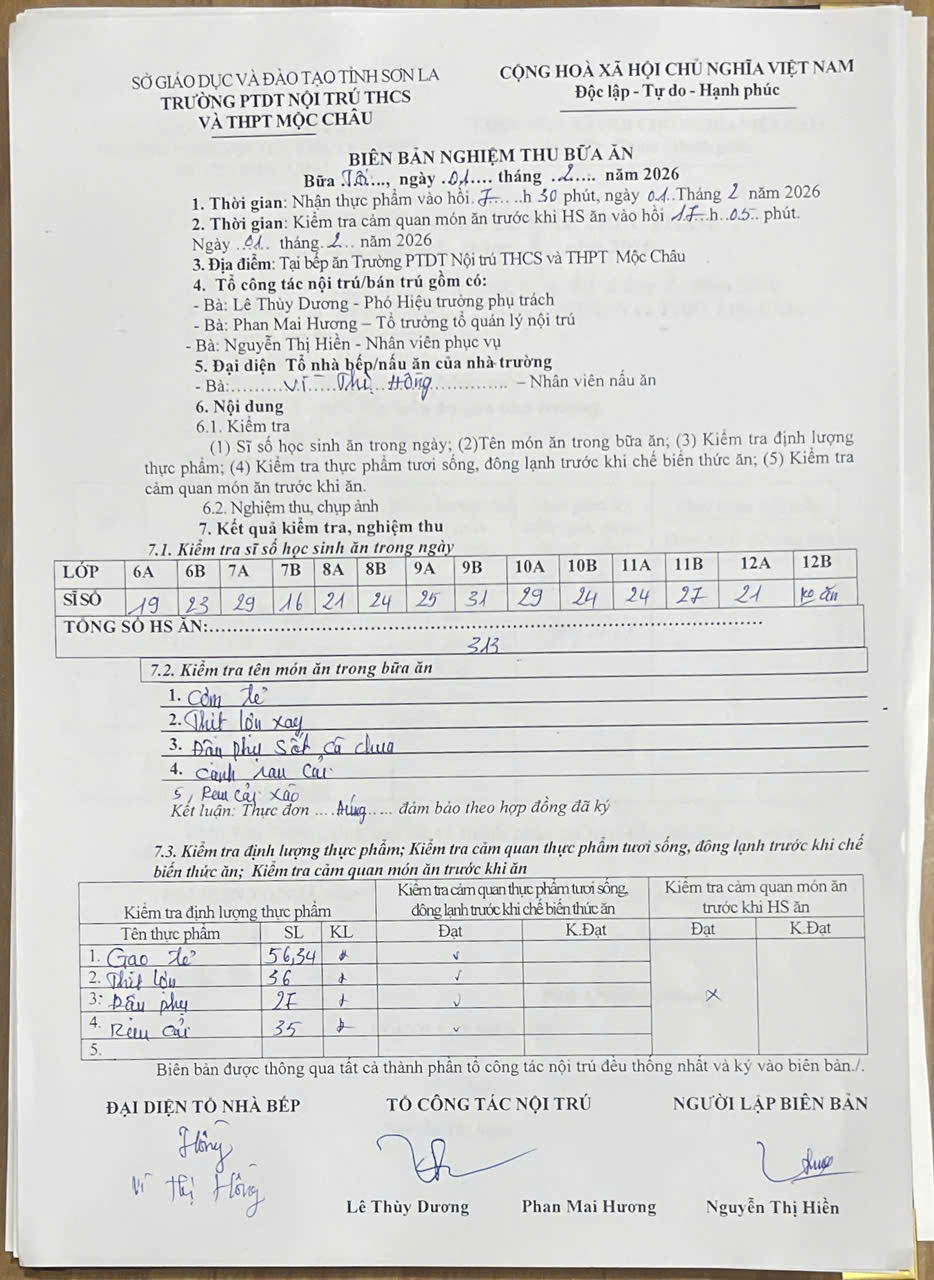 SỞ GIÁO DỤC VÀ ĐÀO TẠO TỈNH SƠN LA
TRƯỜNG PTDT NỘI TRÚ THCS
VÀ THPT MỘC CHÂU
CỘNG HOÀ XÃ HỘI CHỦ NGHĨA VIỆT NAM
Độc lập - Tự do - Hạnh phúc
BIÊN BẢN NGHIỆM THU BỮA ĂN
Bữa Tối..., ngày .01.... tháng .2.... năm 2026
1. Thời gian: Nhận thực phẩm vào hồi. 7.... ..h 30 phút, ngày 01..Tháng 2 năm 2026
2. Thời gian: Kiểm tra cảm quan món ăn trước khi HS ăn vào hồi 17.h..05.. phút.
Ngày .01.. tháng.2.. năm 2026
3. Địa điểm: Tại bếp ăn Trường PTDT Nội trú THCS và THPT Mộc Châu
4. Tổ công tác nội trú/bán trú gồm có:
- Bà: Lê Thùy Dương - Phó Hiệu trưởng phụ trách
- Bà: Phan Mai Hương – Tổ trưởng tổ quản lý nội trú
- Bà: Nguyễn Thị Hiền - Nhân viên phục vụ
5. Đại diện Tổ nhà bếp/nấu ăn của nhà trường
- Bà:.........Vì....Thị..Hồng.............. – Nhân viên nấu ăn
6. Nội dung
6.1. Kiểm tra
(1) Sĩ số học sinh ăn trong ngày; (2)Tên món ăn trong bữa ăn; (3) Kiểm tra định lượng
thực phẩm; (4) Kiểm tra thực phẩm tươi sống, đông lạnh trước khi chế biến thức ăn; (5) Kiểm tra
cảm quan món ăn trước khi ăn.
6.2. Nghiệm thu, chụp ảnh
7. Kết quả kiểm tra, nghiệm thu
7.1. Kiểm tra sĩ số học sinh ăn trong ngày
LỚP 6A 6B 7A 7B 8A 8B 9A 9B 10A 10B 11A 11B 12A 12B
SĨ SỐ 19 23 29 16 21 24 25 31 29 24 24 27 21 ko ăn
TỔNG SỐ HS ĂN:..........................................................................................
313
7.2. Kiểm tra tên món ăn trong bữa ăn
1. Cơm tẻ
2. Thịt lợn xay
3. Đậu phụ sốt cà chua
4. Canh rau cải
5, Rau cải xào
Kết luận: Thực đơn ....đúng..... đảm bảo theo hợp đồng đã ký
7.3. Kiểm tra định lượng thực phẩm; Kiểm tra cảm quan thực phẩm tươi sống, đông lạnh trước khi chế
biến thức ăn; Kiểm tra cảm quan món ăn trước khi ăn
Kiểm tra định lượng thực phẩm
Kiểm tra cảm quan thực phẩm tươi sống,
đông lạnh trước khi chế biến thức ăn
Kiểm tra cảm quan món ăn
trước khi HS ăn
Tên thực phẩm SL KL Đạt K.Đạt Đạt K.Đạt
1. Gạo tẻ 56,34 ✓
2. Thịt lợn 36 ✓
3: Đậu phụ 27 ✓ x
4. Rau cải 35 ✓
5.
Biên bản được thông qua tất cả thành phần tổ công tác nội trú đều thống nhất và ký vào biên bản./.
ĐẠI DIỆN TỔ NHÀ BẾP TỔ CÔNG TÁC NỘI TRÚ NGƯỜI LẬP BIÊN BẢN
Hồng
Vì Thị Hồng
Lê Thùy Dương Phan Mai Hương Nguyễn Thị Hiền